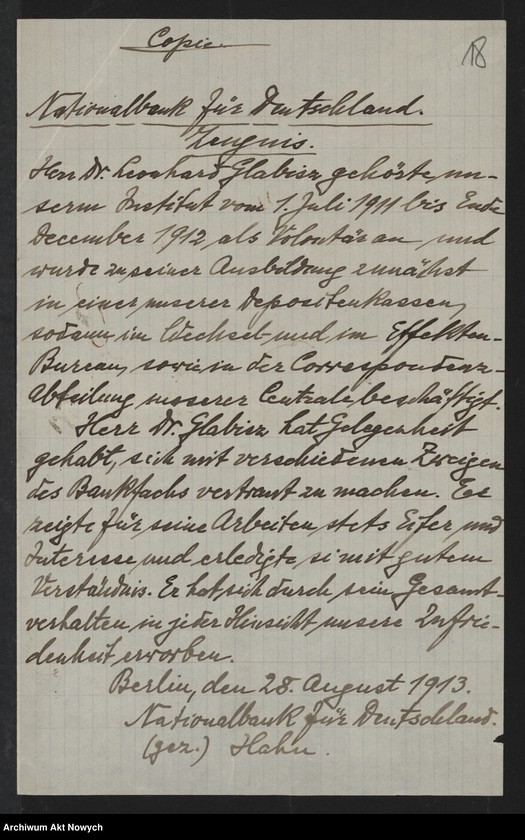 Copie.
18
Nationalbank für Deutschland.
Zeugnis.
Herr Dr. Leonhard Glabisz gehörte un-
serm Institut vom 1. Juli 1911 bis Ende
December 1912, als Volontär an und
wurde zu seiner Ausbildung zunächst
in einer unserer Depositenkassen,
sodann im Wechsel- und im Effekten-
Bureau, sowie in der Correspondenz-
Abteilung unserer Centrale beschäftigt.
Herr Dr. Glabisz hat Gelegenheit
gehabt, sich mit verschiedenen Zweigen
des Bankfachs vertraut zu machen. Er
zeigte für seine Arbeiten stets Eifer und
Interesse und erledigte si mit gutem
Verständnis. Er hat sich durch sein Gesamt-
verhalten in jeder Hinsicht unsere Zufrie-
denheit erworben.
Berlin, den 28. August 1913.
Nationalbank für Deutschland.
(gez.) Hahn.
Archiwum Akt Nowych